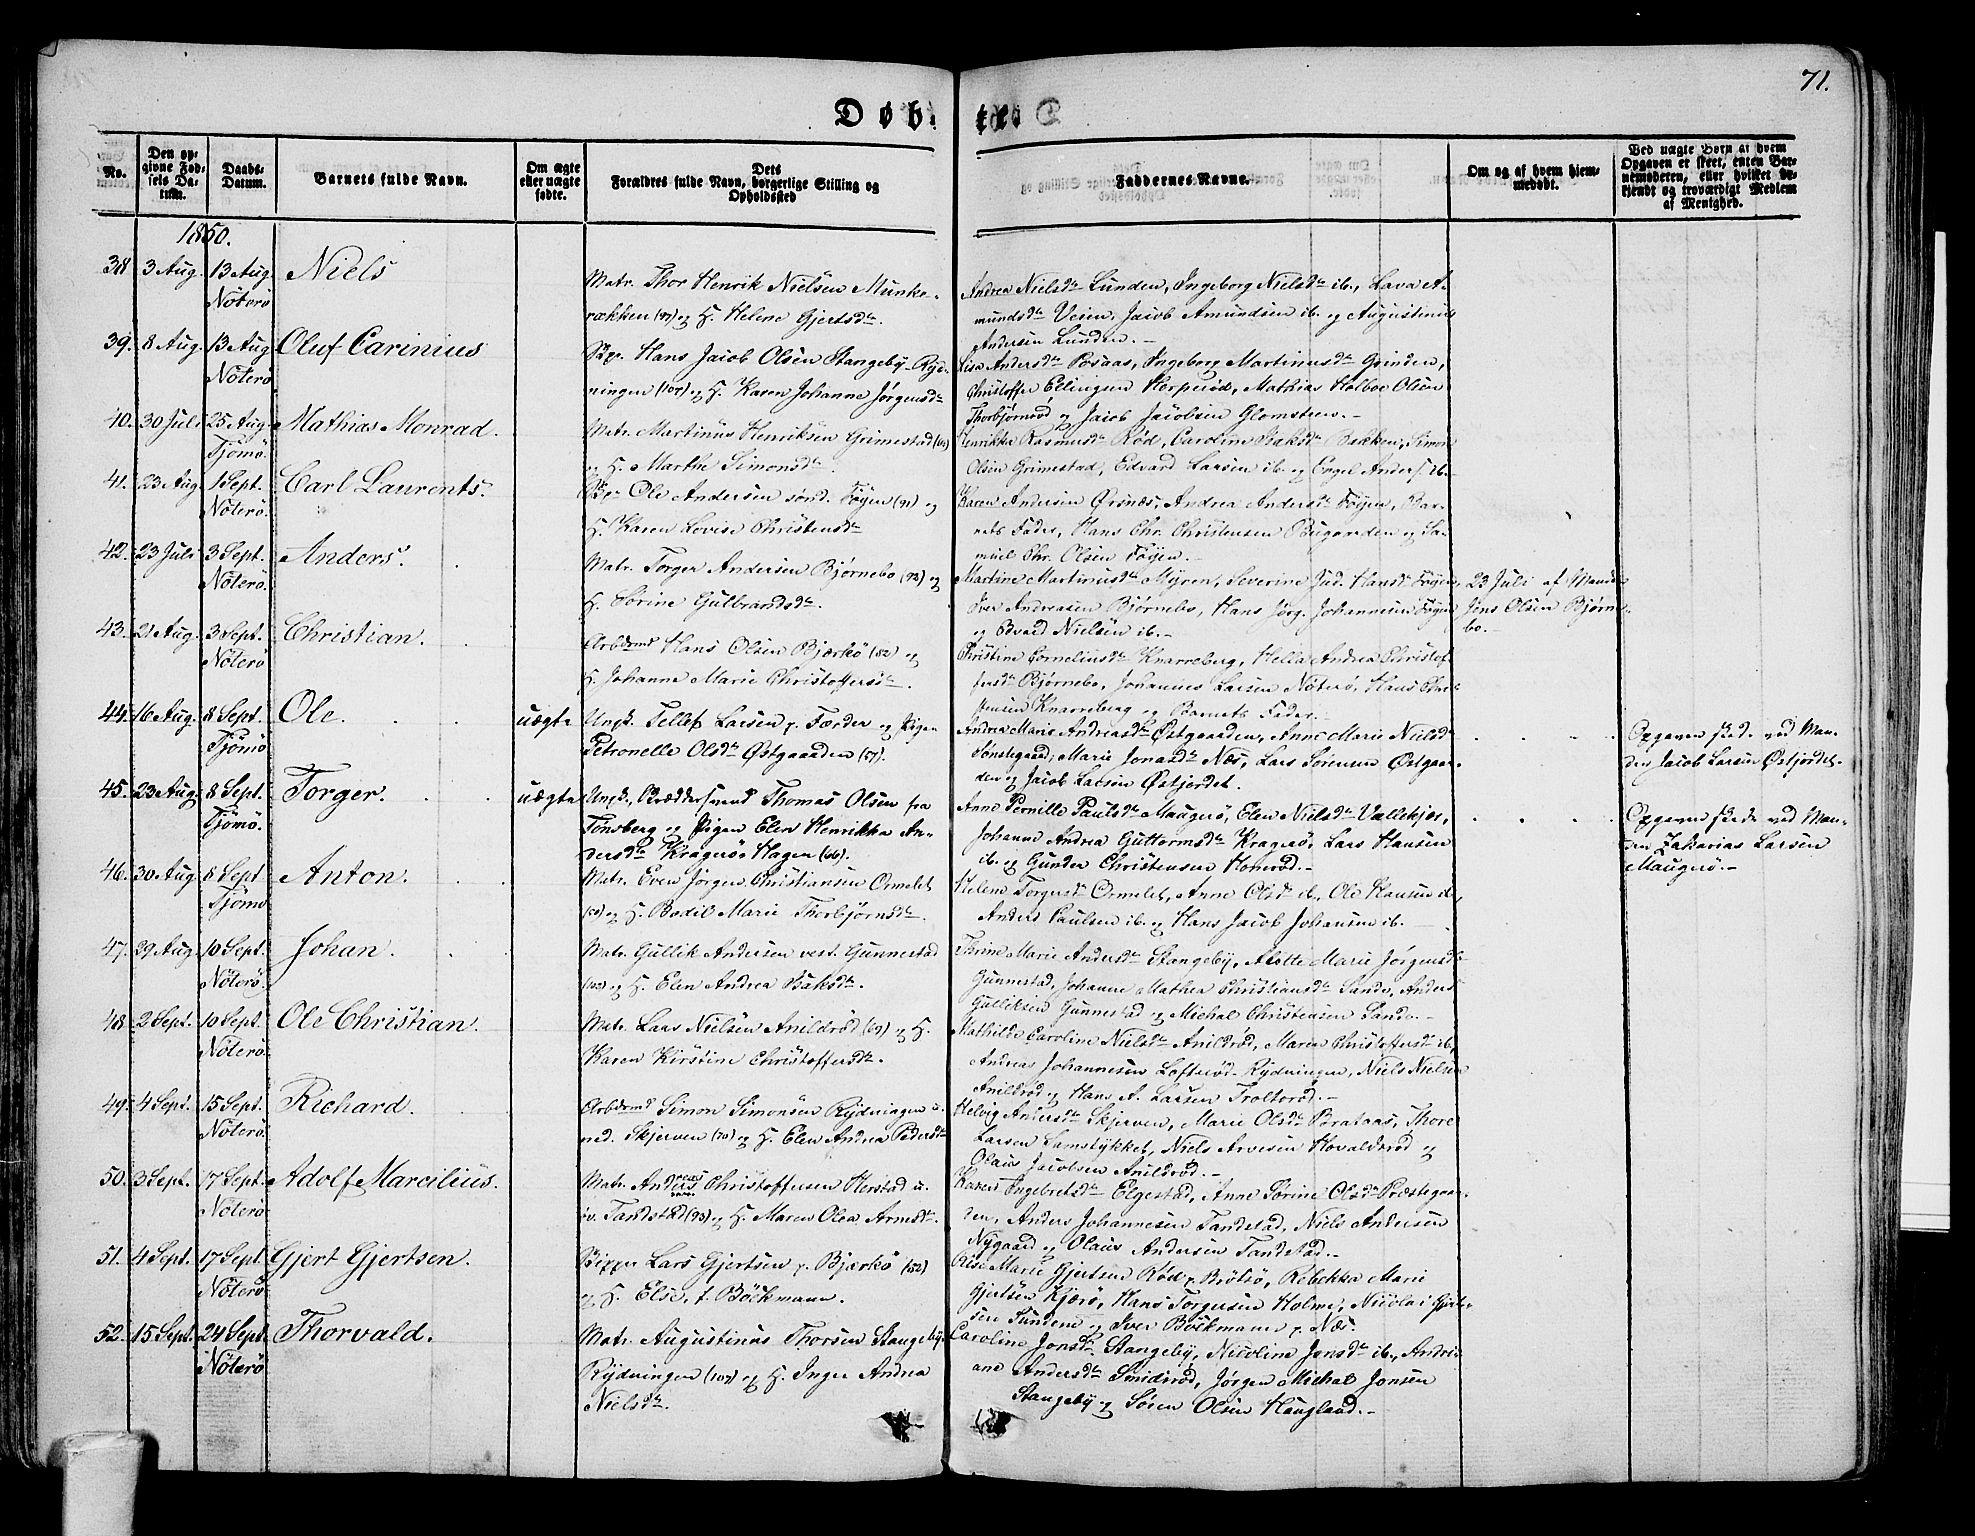 71.
Døbte
No.
Den opgivne Fødsels Datum.
Daabs-Datum.
Barnets fulde Navn.
Om ægte eller uægte fødte.
Dets Forældres fulde Navn, borgerlige Stilling og Opholdssted
Faddernes Navne.
Om og af hvem hjemmedøbt.
Ved uægte Børn at hvem Opgaven er skeet, enten Barnemoderen, eller hvilket bekjendt og troværdigt Medlem af Menighed.
1850.
38 3 Aug. 13 Aug. Nöterö Niels
Matr. Thor Henrik Nielsen Munke-
rækken (99) og H. Helene Gjertsdtr.
Andrea Nielsdtr Lunden, Ingeborg Nielsdtr ib., Lava A-
mundsdtr Veien, Jacob Amundsen ib. og Augustinus
Andersen Lunden.-
39. 8 Aug. 13 Aug Nöterö Oluf Carinius
Hans Jacob Olsen Stangeby-Ryd-
ningen (107) og H. Karen Johanne Jørgensdtr
Lisa Andersdtr Rosaas, Ingeborg Martinusdtr Grinden,
Christoffer Ellingsen Herperöd, Mathias Holboe Olsen
Thorbjørnröd og Jacob Jacobsen Glomsteen.-
40. 30 Juli 25 Aug. Tjömö. Mathias Monrad.
Matr. Martinus Henriksen Grimestad
og H. Marthe Simonsdtr.
Henrikka Rasmusdtr Röd, Caroline Isaksdtr Bakken, Simon
Olsen Grimestad, Edvard Larsen ib. og Engel Anders. ib.-
41. 23 Aug 1 Sept. Nöterö. Carl Laurents.
Ole Andersen sönd. Föyen (91) og
H. Karen Lovise Christensdtr
Karen Andersen Ørsnæs, Andrea Andersdtr Föyen, Bar-
nets Fader, Hans Chr. Christensen Bugaarden og Sa-
muel Chr. Olsen Föyen.-
42. 23 Juli 3 Sept. Nöterö. Anders.
Matr. Torger Andersen Bjørnebo (92) og
H. Sørine Gulbrandsdtr.
Martine Martinusdtr Myren, Severine Jud. Hansd. Föyen,
Iver Andreasen Bjørnebo, Hans Jørg. Johannesen Föyen
og Edvard Nielsen ib.-
23 Juli af Manden
Jens Olsen Bjørne-
bo.-
43. 21 Aug. 3 Sept. Nöterö Christian.
Arbdsmd Hans Olsen Bjerkö (52) og
H. Johanne Marie Christoffersdtr.
Christine Corneliusdtr Knarreberg, Hella Andrea Christof-
fersdtr Bjørnebo, Johannes Larsen Nöterö, Hans Chri-
stensen Knarreberg og Barnets Fader.-
44. 16 Aug. 8 Sept. Tjömö Ole. uægte
Ungk. Tellef Larsen p. Færder og Pigen
Petronelle Olsdtr Østgaarden (57).
Andrea Marie Andreasdtr Østgaarden, Anne Marie Nielsdtr
Sønstegaard, Marie Jonasdtr Næs, Lars Sørensen Østgaar-
den og Jacob Larsen Østjordet.
Opgaven skede ved Man-
den Jacob Larsen Østjordet.-
45. 23 Aug. 8 Sept. Tjömö. Torger. uægte
Ungk. Brøddersvend Thomas Olsen fra
Tønsberg og Pigen Elen Henrikka An-
dersdtr Kragerö Hagen (66).
Anne Pernille Paulsdtr Maugerö, Elen Nielsdtr Vallekjær,
Johanne Andrea Guttormsdtr Kragerö, Lars Hansen
ib. og Gunder Christensen Honeröd.-
Opgaven skede ved Man-
den Zakarias Larsen
Maugerö.-
46. 30 Aug 8 Sept Tjömö Anton.
Matr. Even Jørgen Christiansen Ormelet
og H. Bodil Marie Thorbjørnsdtr.
Helene Torgersdtr Ormelet, Anne Olsdtr ib., Ole Hansen ib,
Anders Paulsen ib. og Hans Jacob Johansen ib.
47. 29 Aug. 10 Sept. Nöterö. Johan.
Matr. Gullik Andersen vest. Gunnestad
(103) og H. Elen Andrea Isaksdtr.
Thrine Marie Andersdtr Stangeby, Alette Marie Jørgensdtr
Gunnestad, Johanne Mathea Christiansdtr Sande, Anders
Gulliksen Gunnestad og Michal Christensen Sande.-
48 2 Sept. 10 Sept. Nöterö. Ole Christian.
Matr. Lars Nielsen Anildröd (69) og H.
Karen Kirstine Christoffersdtr.
Mathilde Caroline Nielsdtr Anildröd, Maren Christoffersdtr ib,
Andreas Johannesen Lofteröd-Rydningen, Niels Nielsen
Anildröd og Hans A. Larsen Trolteröd.-
49. 4 Sept. 15 Sept. Nöterö. Richard.
Arbdsmd Simon Simonsen Rydningen u.
ned. Skjerven (70) og H. Elen Andrea Pedersdtr
Helvig Andersdtr Skjerven, Marie Olsdtr Brataas, Thore
Larsen Samstykket, Niels Arvesen Hovaldsröd og
Olaus Jacobsen Anildröd.-
50. 3 Sept. 17 Sept. Nöterö Adolf Marcilius.
Matr. Andreas Christoffersen Herstad u.
öv. Tandstad (93) og H. Maren Olea Arnsdtr.
Karen Ingebretsdtr Elgestad, Anne Sørine Olsdtr Præstegaar-
den, Anders Johannesen Tandstad, Niels Andersen
Nygaard og Olaus Andersen Tandstad.-
51. 4 Sept. 17 Sept. Nöterö Gjert Gjertsen.
Lars Gjertsen p. Bjerkö (52)
og H. Else, f. Böckmann.
Else Marie Gjertsen Röd p. Brötsö, Rebekka Marie
Gjertsen Kjærö, Hans Torgersen Holme, Nicolai Gjert-
sen Sundene og Iver Böckmann p. Næs.
52. 15 Sept. 24 Sept. Nöterö Thorvald.
Matr. Augustinus Thorsen Stangeby-
Rydningen (107) og H. Inger Andrea
Nielsdtr.
Caroline Jonsdtr Stangeby, Nicoline Jonsdtr ib., Andri-
ane Andersdtr Smidsröd, Jørgen Michal Jonsen
Stangeby og Søren Olsen Haugland.-